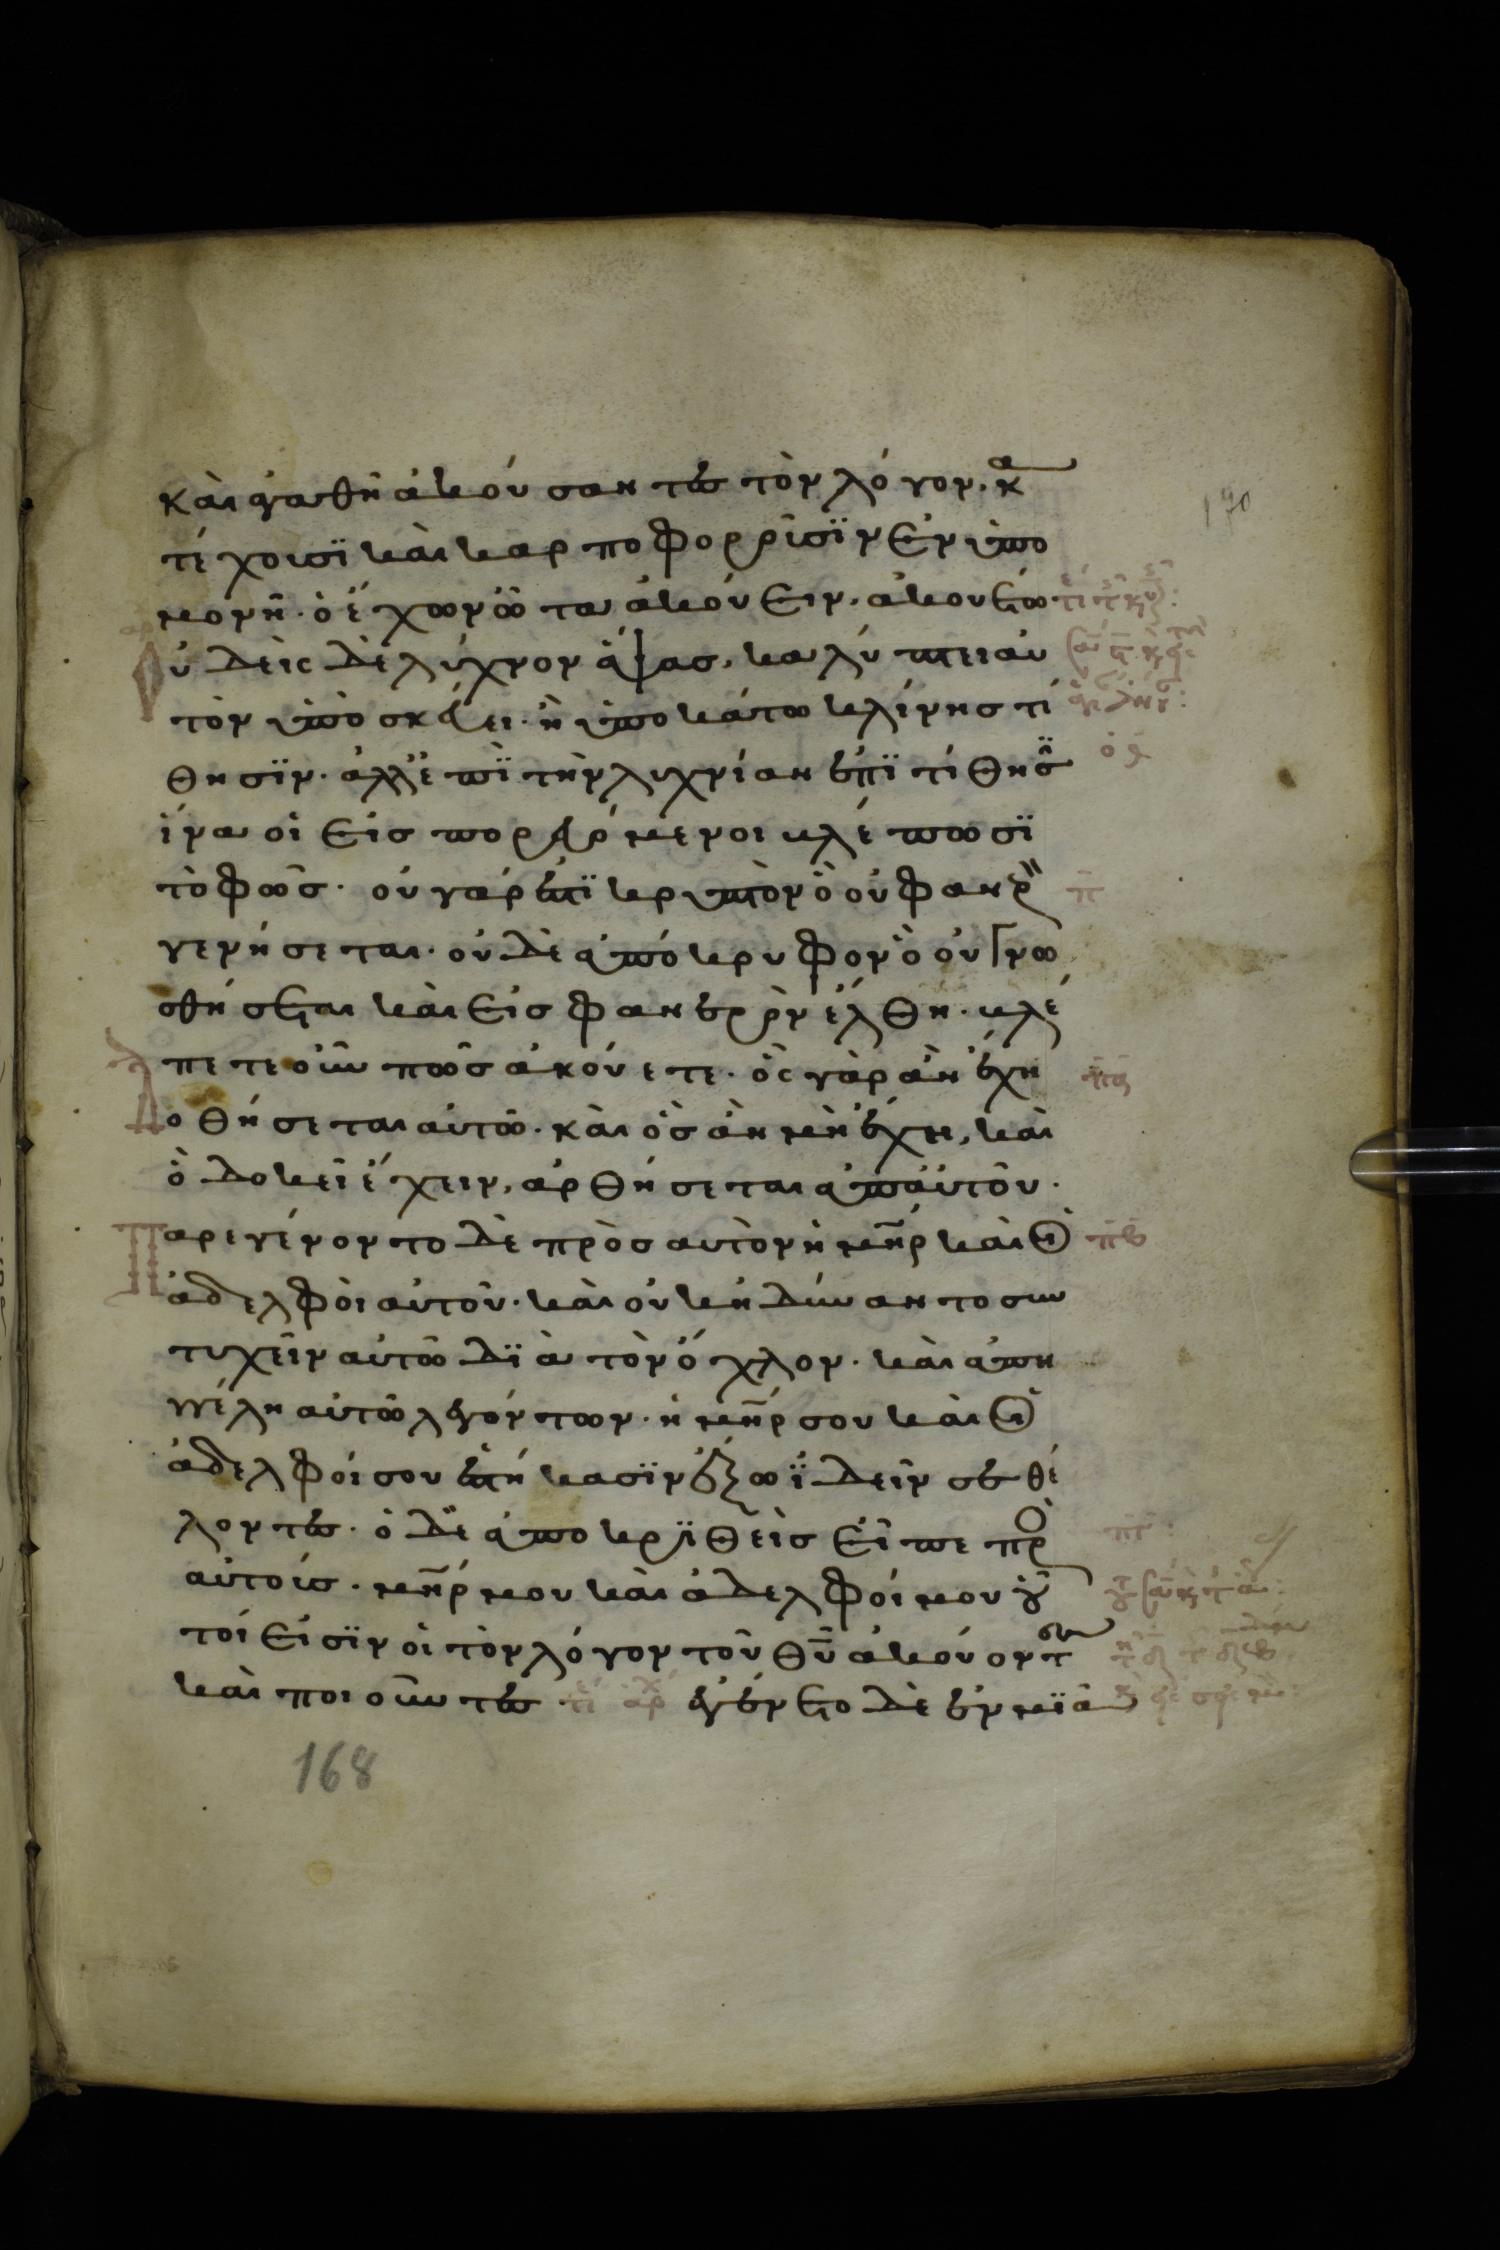 καὶ ἀγαθῆ ἀκούσαντες τὸν λόγον. κα
τέχουσϊ καὶ καρποφοροῦσϊν ἐν ὑπο
μονῆ· ὁ ἔχων ὦτα ἀκούειν. ἀκουέτω
ὐδεὶς δὲ λύχνον ἅψας, καλύπτει αὐ
τὸν ὑπὸ σκεύει· ἢ ὑποκάτω κλίνης τί
θησϊν· ἀλλ' ἐπῒ τὴν λυχνίαν ἐπϊτίθησϊ
ἵνα οἱ εἰσπορευόμενοι βλέπωσϊ
τὸ φῶς· οὐ γάρ ἐστϊ κρυπτὸν ὃ οὐ φανερὸν
γενήσεται· οὐδὲ ἀπόκρυφον ὃ οὐ γνω
σθήσεται καὶ εἰς φανερὸν ἔλθη· βλέ
πετε οὖν πῶς ἀκούετε· ὃς γὰρ ἂν ἔχη
δοθήσεται αὐτῶ· καὶ ὃς ἂν μὴ ἔχη, καὶ
ὃ δοκεῖ ἔχειν, ἀρθήσεται ἀπ' αὐτοῦ·
Παρεγένοντο δὲ πρὸς αὐτὸν ἡ μηρ καὶ οἱ
ἀδελφοὶ αὐτοῦ· καὶ οὐκ ἠδύναντο συν
τυχεῖν αὐτῶ δϊὰ τὸν ὄχλον· καὶ ἀπη
γγέλη αὐτῶ λεγόντων· ἡ μηρ σου καὶ οἱ
ἀδελφοί σου ἑστήκασϊν ἔξω ἰδεῖν σε θέ
λοντες· ὁ δὲ ἀποκρϊθεὶς εἶπε πρὸ
αὐτούς· μηρ μου καὶ ἀδελφοί μου οὗ
τοί εἰσϊν οἱ τὸν λόγον τοῦ θυ ἀκούοντες
καὶ ποιοῦντες· τέ ἀρχ ἐγένετο δὲ ἐν μϊᾶ
168
170